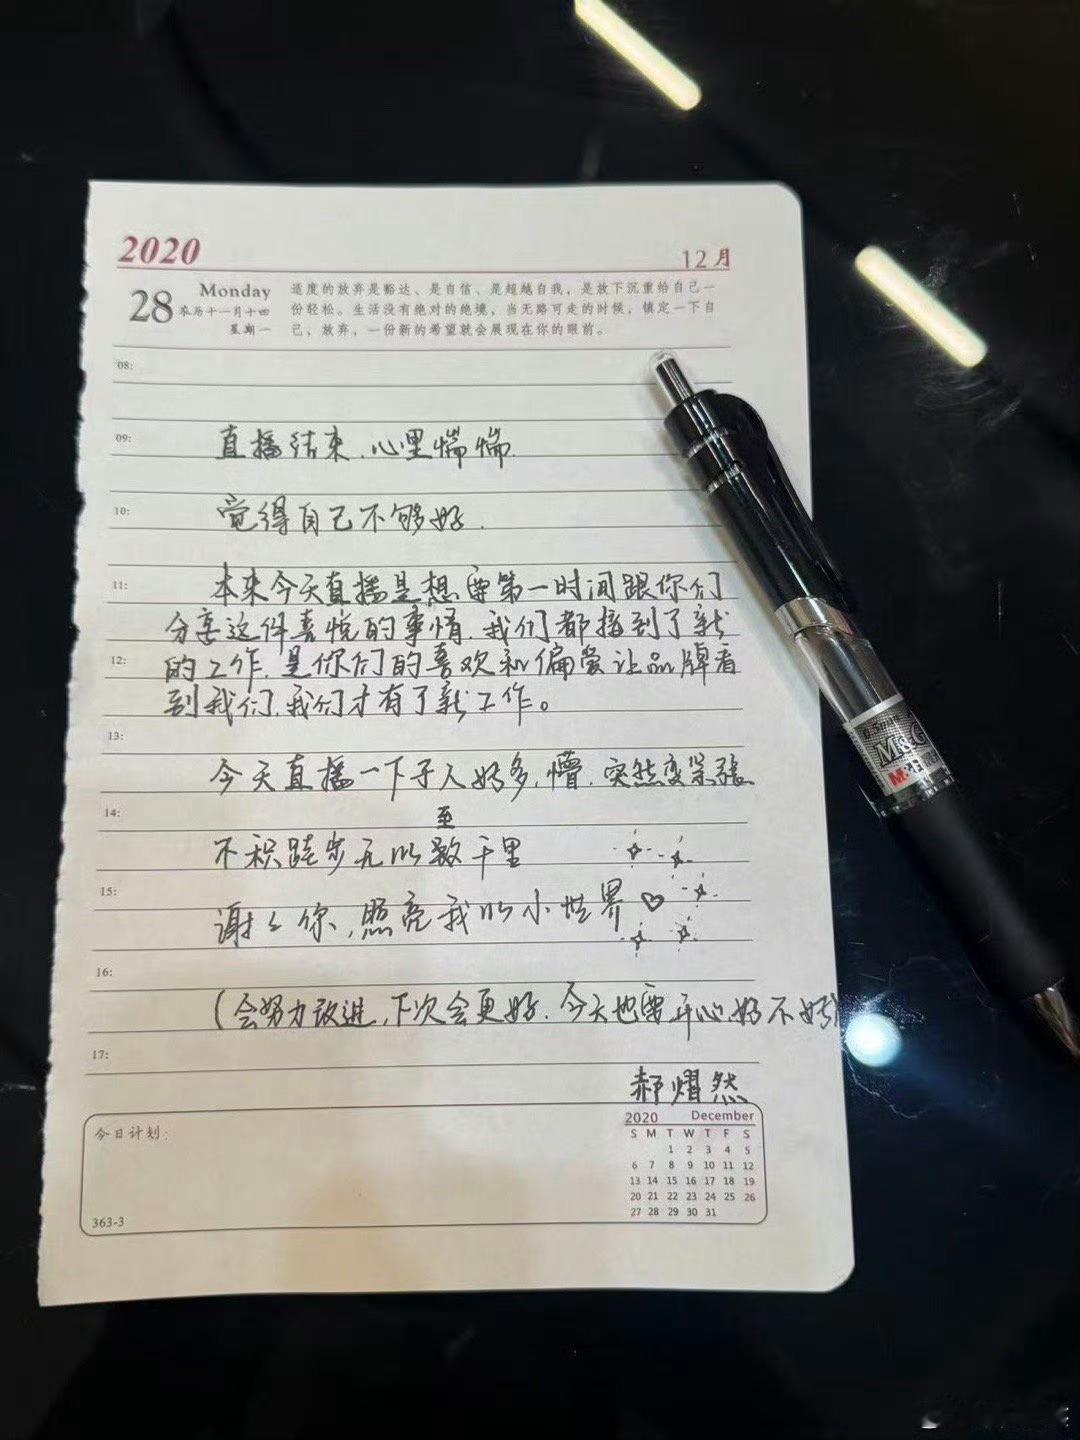 2020
12月
28 Monday
农历十一月十四
星期一
适度的放弃是豁达、是自信、是超越自我，是放下沉重给自己一
份轻松。生活没有绝对的绝境，当无路可走的时候，镇定一下自
己，放弃，一份新的希望就会展现在你的眼前。
08:
09:
直播结束.心里惴惴.
10:
觉得自己不够好.
11:
本来今天直播是想要第一时间跟你们
分享这件喜悦的事情.我们都接到了新
12:
的工作.是你们的喜欢和偏爱让品牌看
到我们.我们才有了新工作。
13:
今天直播一下子人好多.懵.突然变紧张
14:
至
不积跬步无以致千里
15:
谢々你,照亮我的小世界♡
16:
(会努力改进,下次会更好.今天也要开心好不好)
17:
郝熠然
今日计划:
363-3
2020 December
S M T W T F S
1 2 3 4 5
6 7 8 9 10 11 12
13 14 15 16 17 18 19
20 21 22 23 24 25 26
27 28 29 30 31
M&G
M·晨光